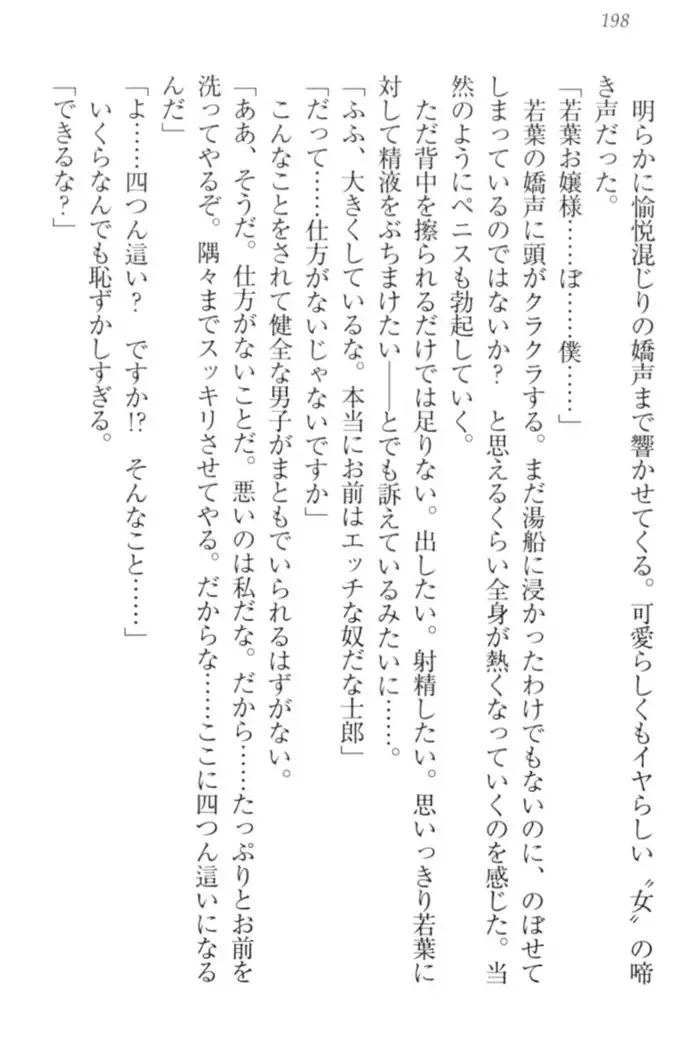 198
明らかに愉悦混じりの嬌声まで響かせてくる。可愛らしくもイヤらしい〝女〟の啼
き声だった。
「若葉お嬢様……ぼ……僕……」
若葉の嬌声に頭がクラクラする。まだ湯船に浸かったわけでもないのに、のぼせて
しまっているのではないか？　と思えるくらい全身が熱くなっていくのを感じた。当
然のようにペニスも勃起していく。
ただ背中を擦られるだけでは足りない。出したい。射精したい。思いっきり若葉に
対して精液をぶちまけたい――とでも訴えているみたいに……。
「ふふ、大きくしているな。本当にお前はエッチな奴だな士郎」
「だって……仕方がないじゃないですか」
こんなことをされて健全な男子がまともでいられるはずがない。
「ああ、そうだ。仕方がないことだ。悪いのは私だな。だから……たっぷりとお前を
洗ってやるぞ。隅々までスッキリさせてやる。だからな……ここに四つん這いになる
んだ」
「よ……四つん這い？　ですか!?　そんなこと……」
いくらなんでも恥ずかしすぎる。
「できるな？」